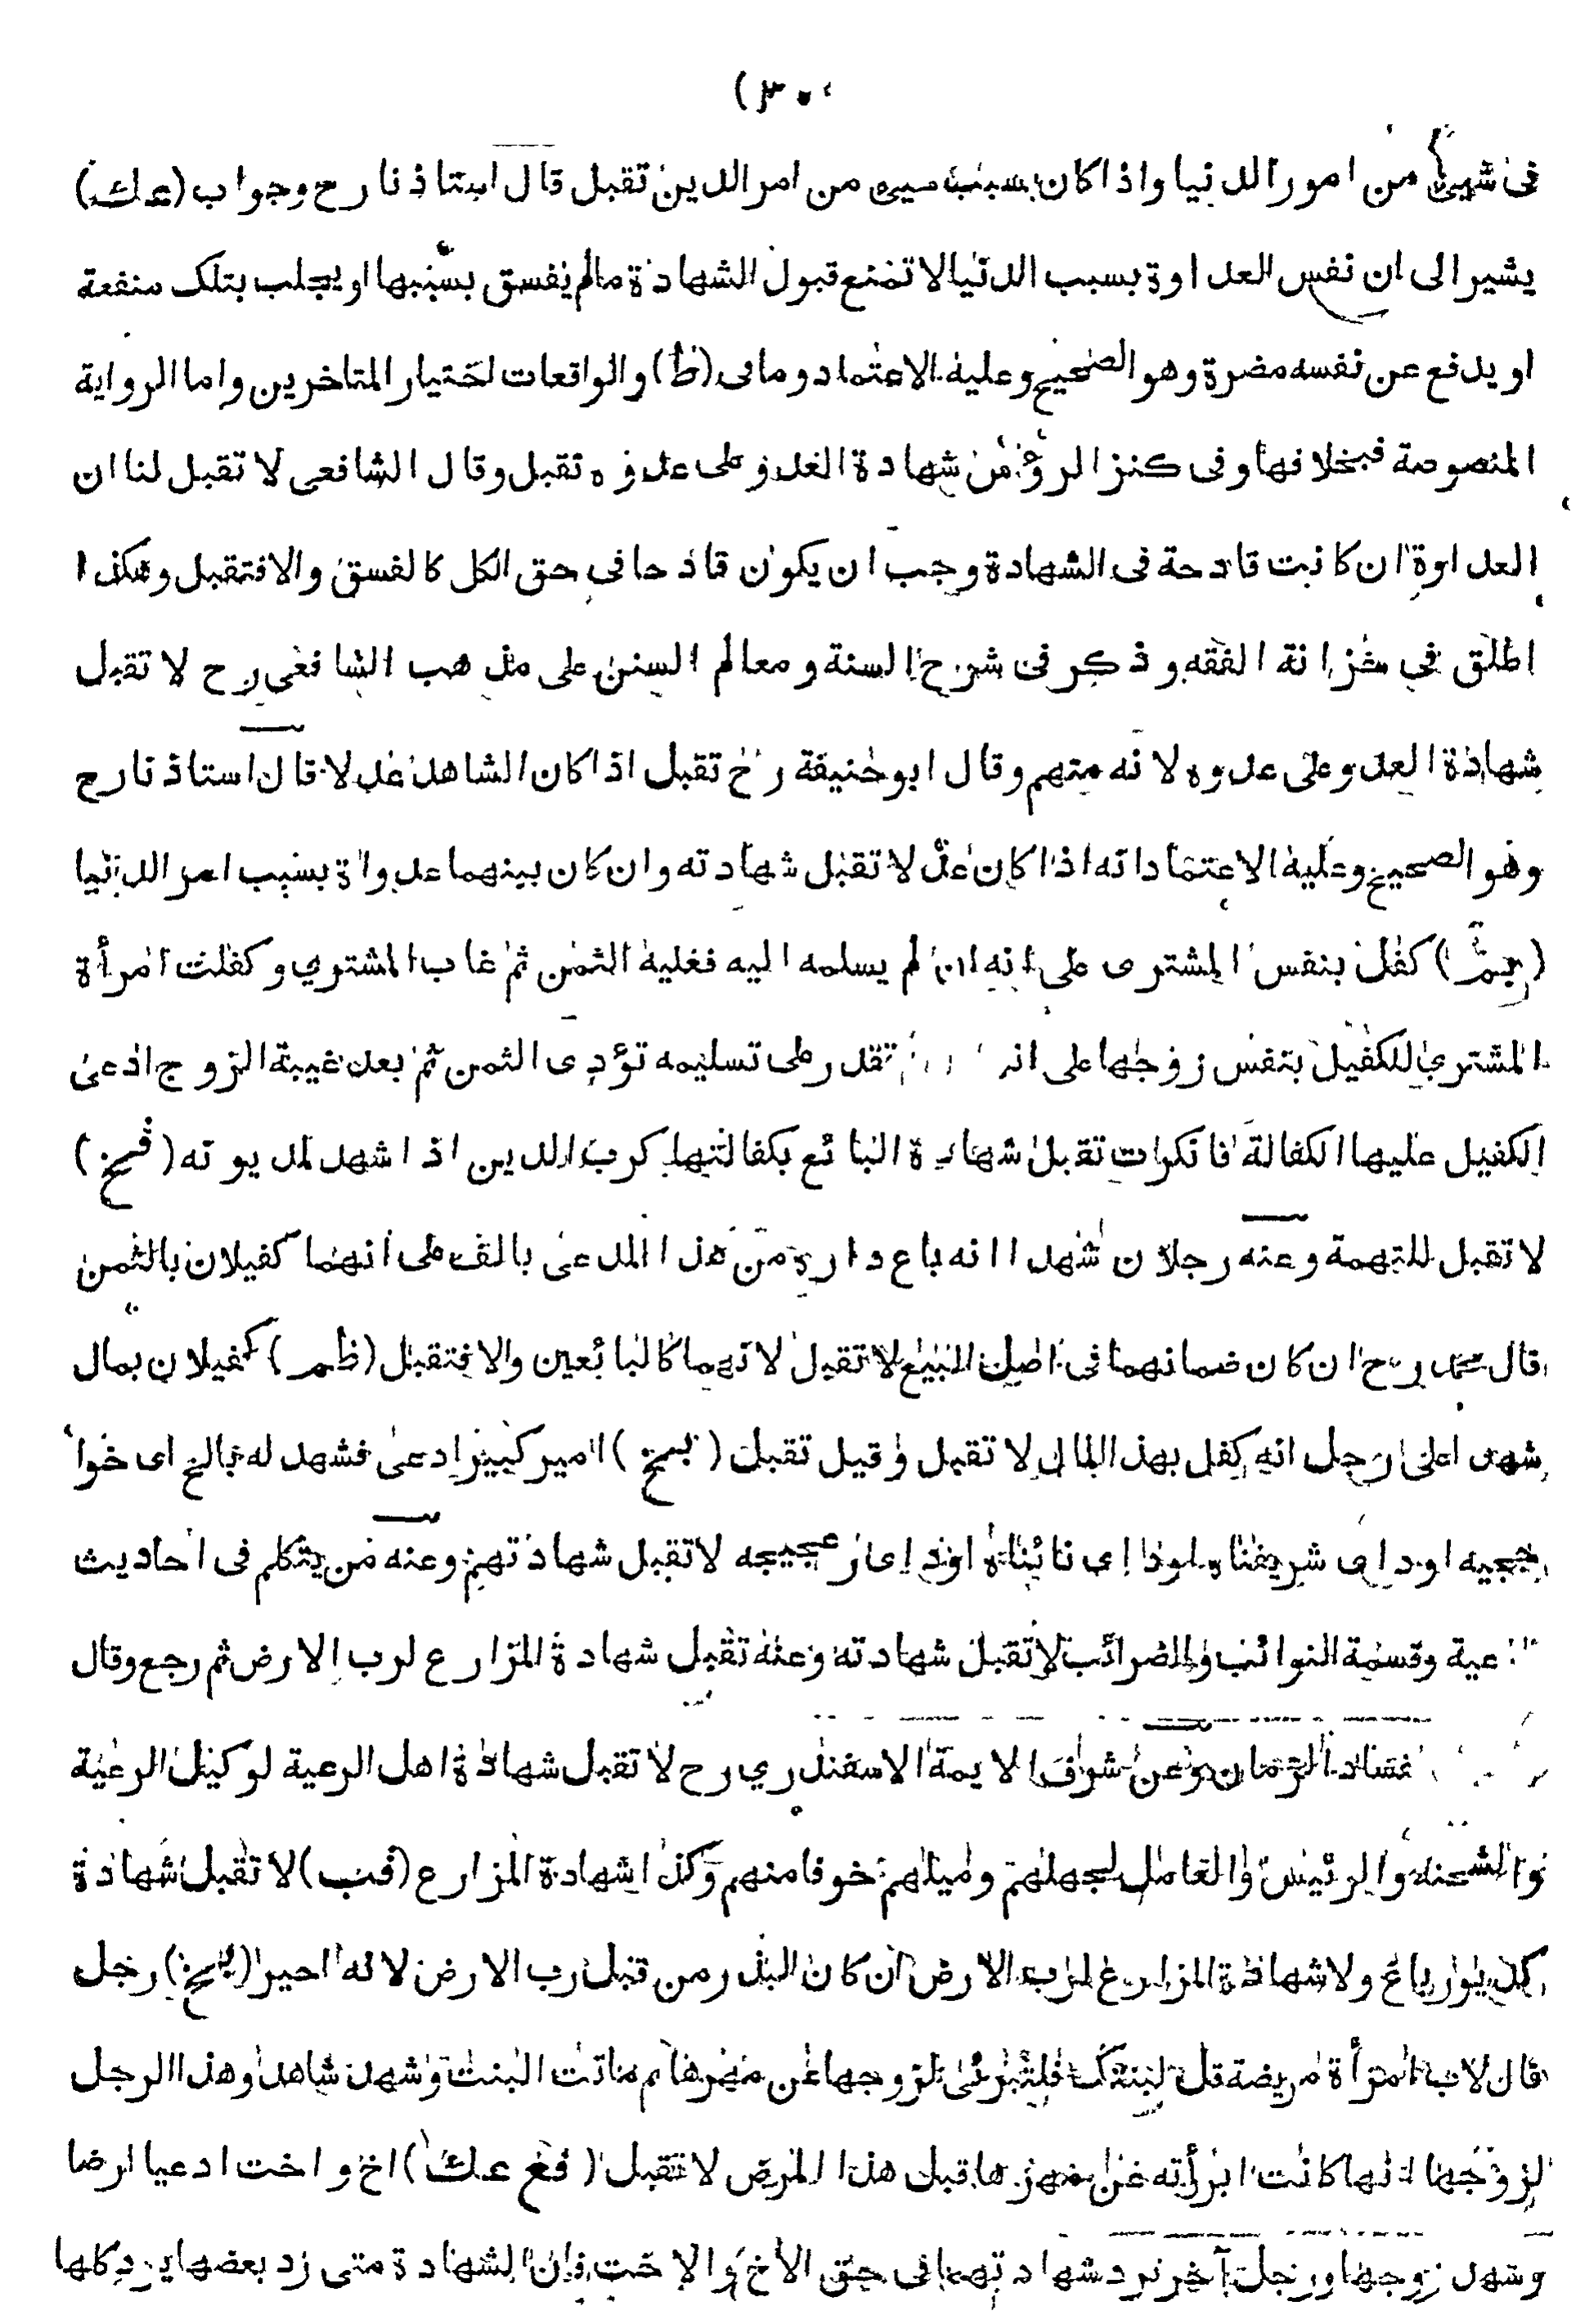 (٣٠٠
فى شيئ من امور الدنيا واذا كان بسبب شيئ من امر الدين تقبل قال استاذنا رح وجواب (عك)
يشير الى ان نفس العداوة بسبب الدنيا لا تمنع قبول الشهادة مالم يفسق بسببها او يجلب بتلك منفعة
او يدفع عن نفسه مضرة وهو الصحيح وعليه الاعتماد وما فى (ظ) والواقعات اختيار المتاخرين واما الرواية
المنصوصة فبخلافها وفى كنز الرؤس شهادة العدو على عدوه تقبل وقال الشافعى لا تقبل لنا ان
العداوة ان كانت قادحة فى الشهادة وجب ان يكون قادحا في حق الكل كالفسق والا فتقبل وهكذا
اطلق في خزانة الفقه وذكر فى شرح السنة ومعالم السنن على مذهب الشافعى رح لا تقبل
شهادة العدو على عدوه لانه متهم وقال ابو حنيفة رح تقبل اذا كان الشاهد عدلا قال استاذنا رح
وهو الصحيح وعليه الاعتماد انه اذا كان عدلا تقبل شهادته وان كان بينهما عداوة بسبب امر الدنيا
(بم) كفل بنفس المشترى على انه ان لم يسلمه اليه فعليه الثمن ثم غاب المشتري وكفلت امرأة
المشتري للكفيل بنفس زوجها على تقدر على تسليمه تؤدى الثمن ثم بعد غيبة الزوج ادعى
الكفيل عليها الكفالة فانكرت تقبل شهادة البائع بكفالتها كرب الدين اذا شهد لمديونه (قمخ)
لا تقبل للتهمة وعنه رجلان شهدا انه باع داره من هذا المدعى بالف على انهما كفيلان بالثمن
قال محمد رح ان كان ضمانهما فى اصل البيع لا تقبل لانهما كالبائعين والا فتقبل (ظم) كفيلان بمال
شهدا على رجل انه كفل بهذا المال لا تقبل وقيل تقبل (بمخ) امير كبير ادعى فشهد له
لا تقبل شهادتهم وعنه من يتكلم فى احاديث
عية وقسمة النوائب والضرائب لا تقبل شهادته وعنه تقبل شهادة المزارع لرب الارض ثم رجع وقال
فساد الزمان وعن شرف الايمة الاسفندري رح لا تقبل شهادة اهل الرعية لوكيل الرعية
والشحنه والرئيس والعامل لجهلهم وميلهم خوفا منهم وكذا شهادة المزارع (قب) لا تقبل شهادة
ولا شهادة المزارع لرب الارض ان كان البذر من قبل رب الارض لانه اجير (بمخ) رجل
قال لاب امرأة مريضة قل لبنتك فلتبرئى لزوجها عن مهرها ثم ماتت البنت وشهد شاهد وهذا الرجل
لزوجها انها كانت ابرأته عن مهرها قبل هذا المرض لا تقبل (فع عك) اخ واخت ادعيا ارضا
وشهد زوجها ورجل آخر ترد شهادتهما فى حق الاخ والاخت فان الشهادة متى رد بعضها يرد كلها